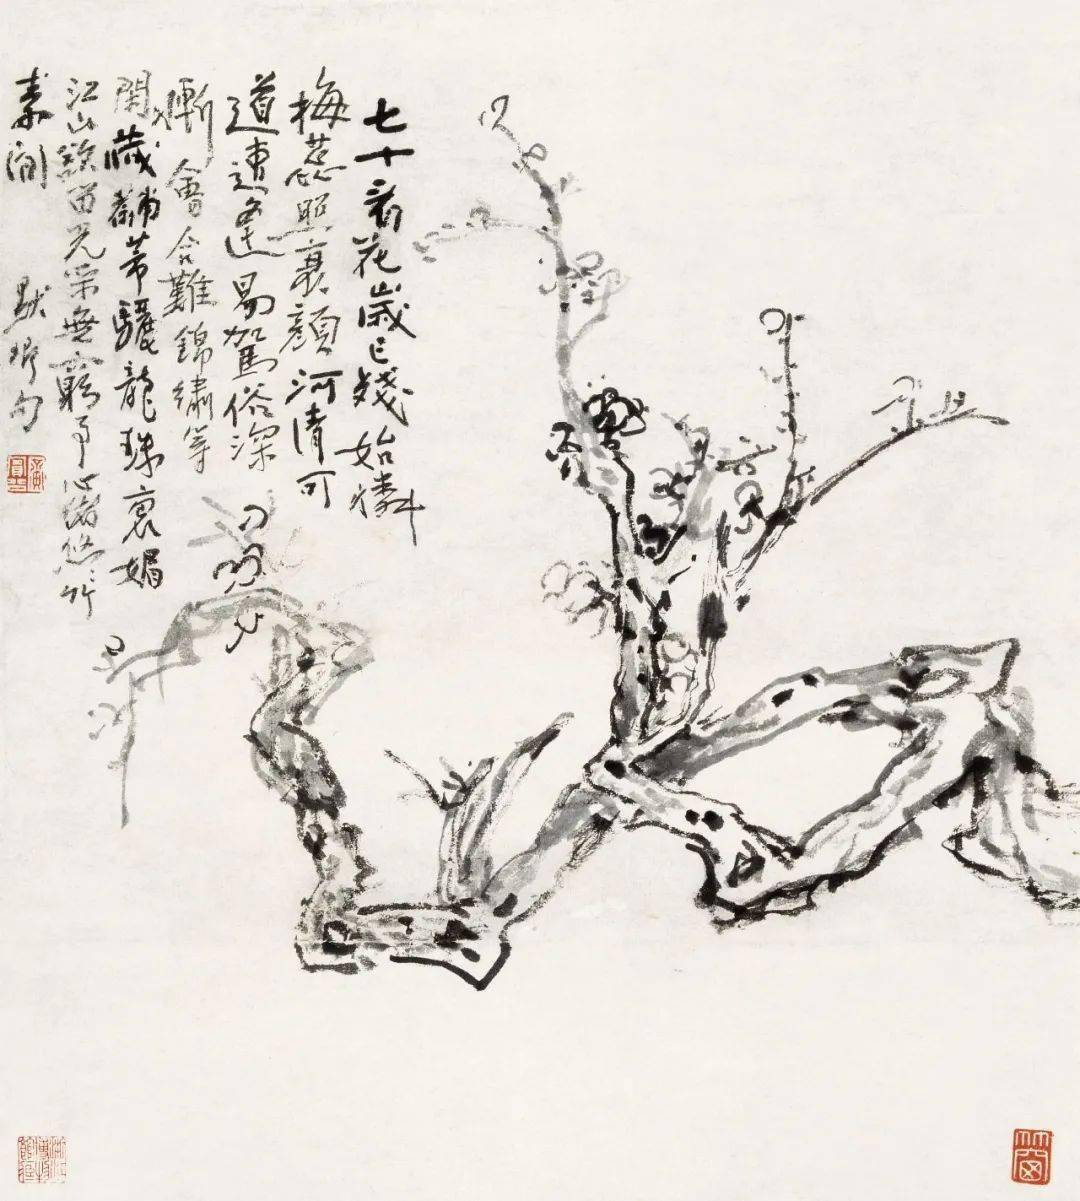 七十看花歲已殘始憐
梅蕊照衰顏河清可
道遭逢易駕俗深
慚會合難錦繡等
閒藏黼芾驪龍珠裏媚
江山欲留光采無窮事心緒悠悠竹
素間 默卿句